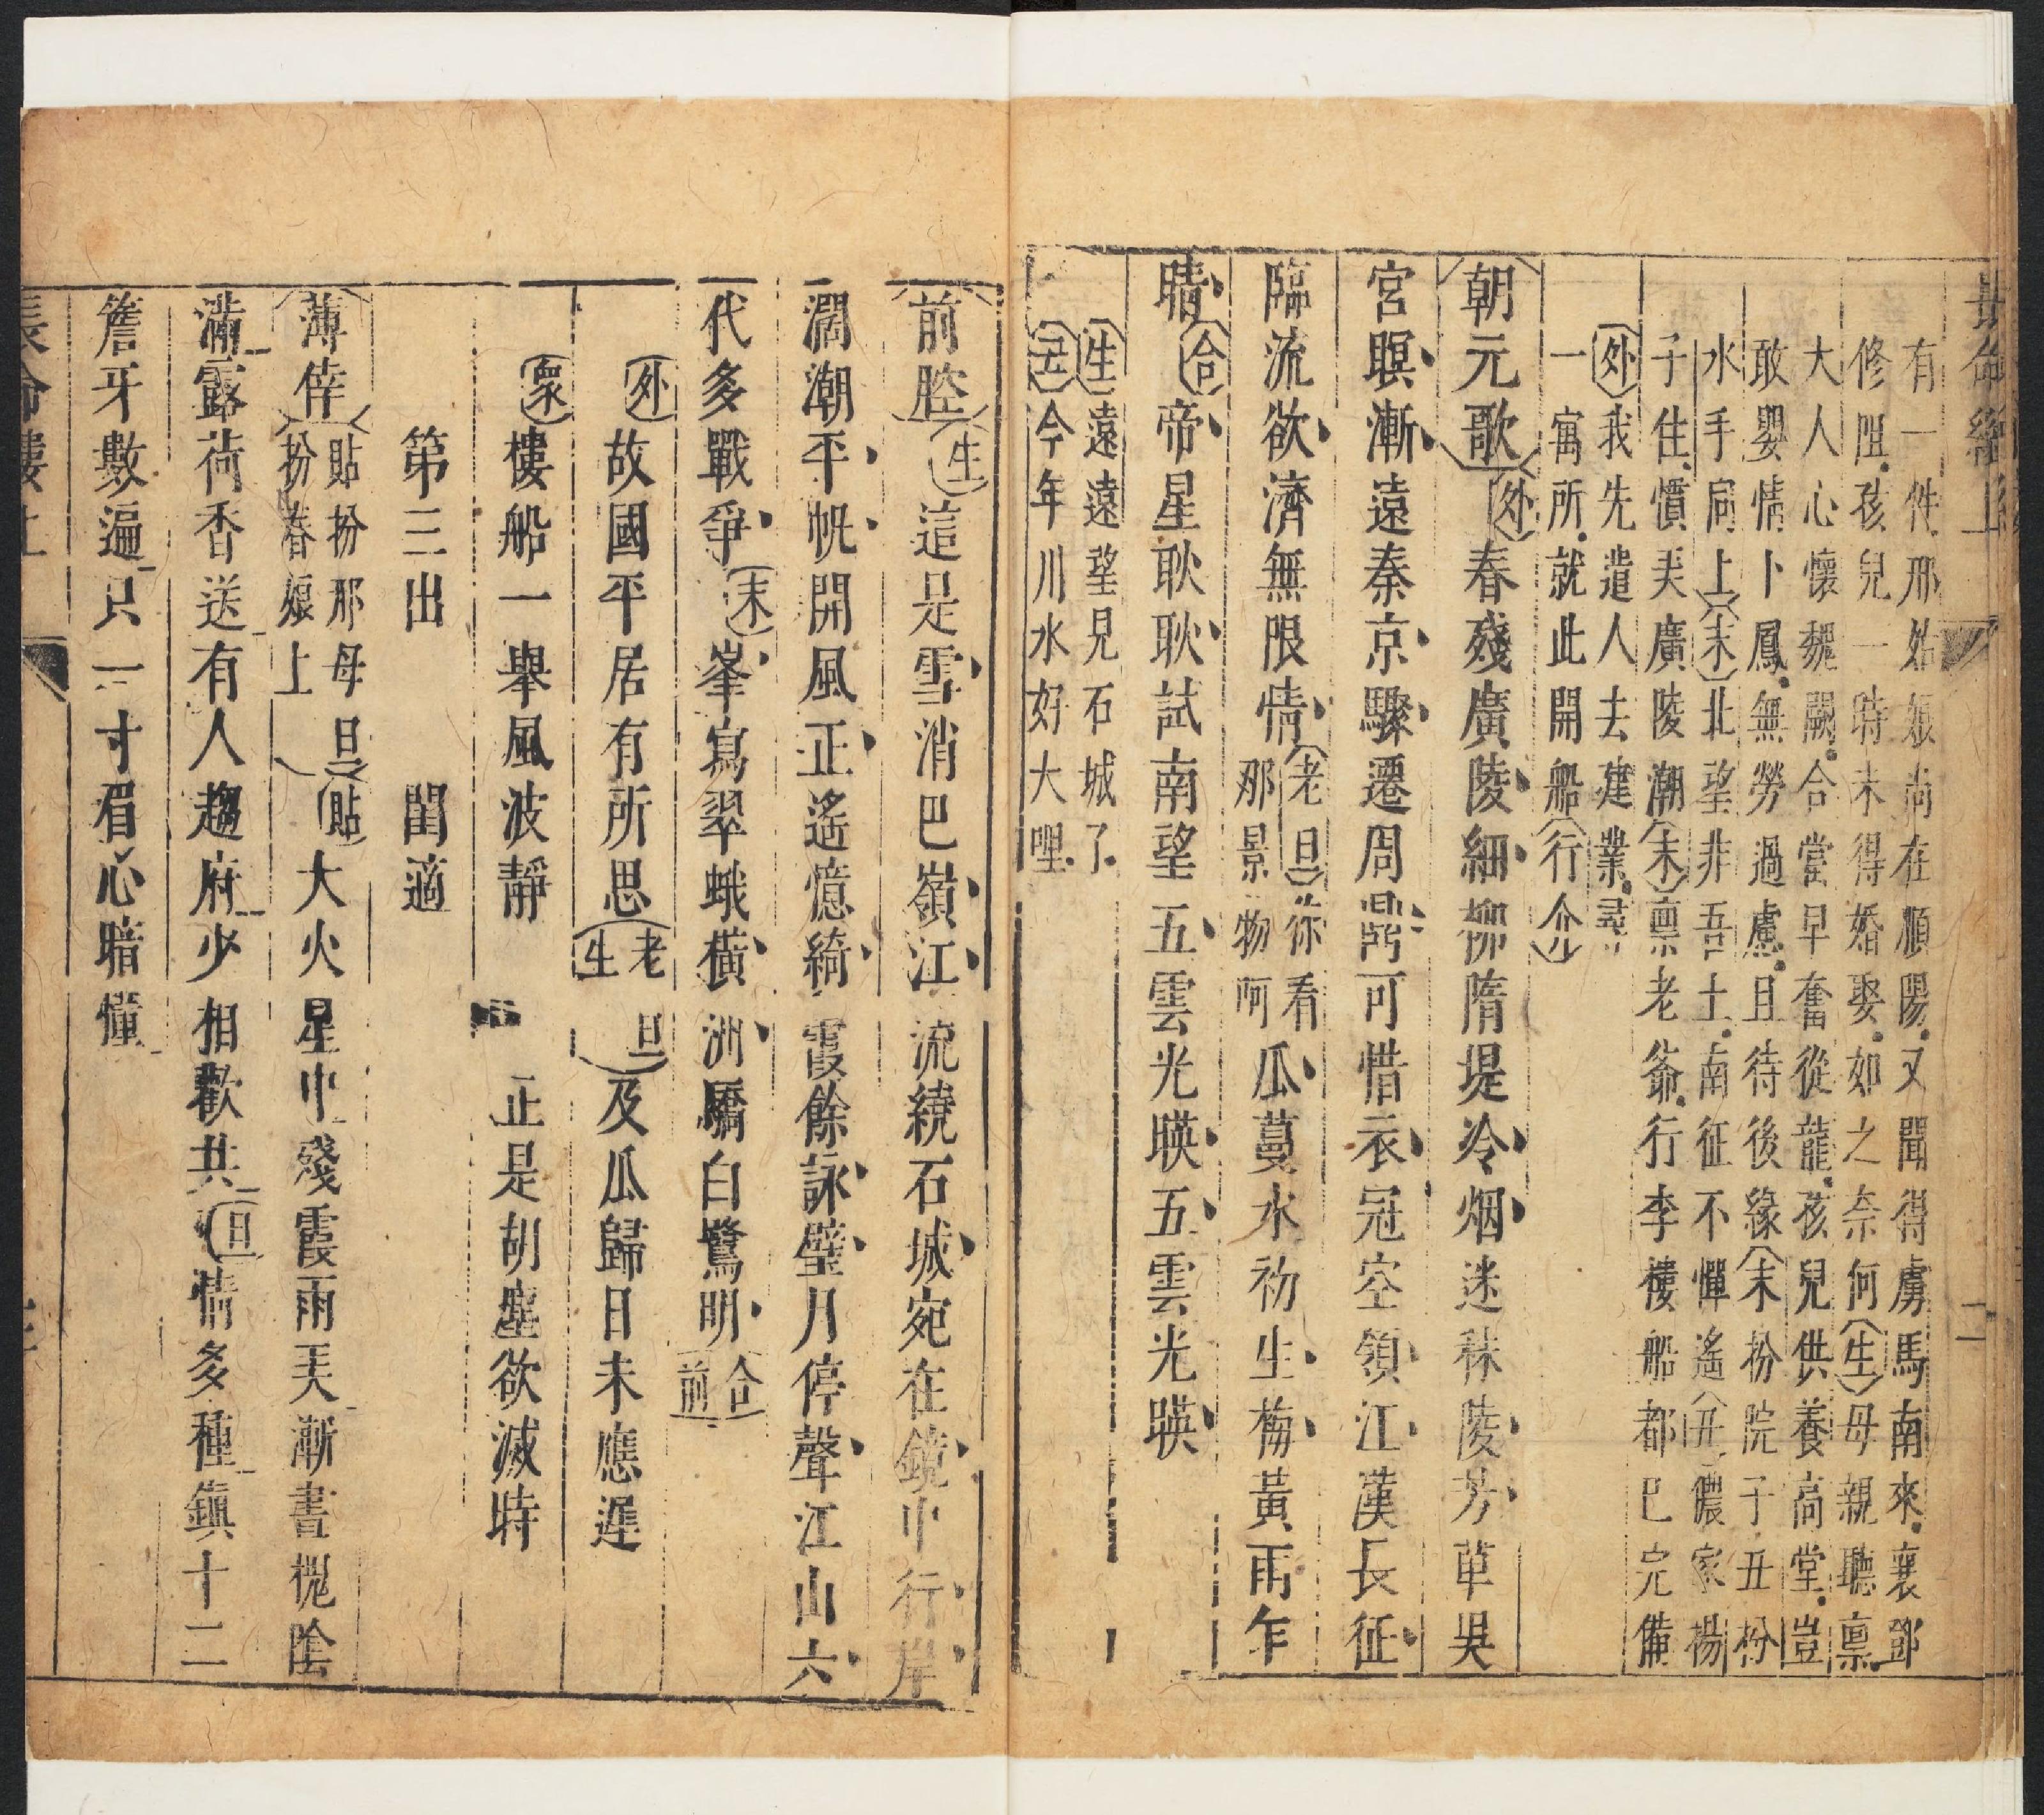 有一件邢姑娘尚在順陽又聞得虜馬南來襄鄧
修阻孩兒一時未得婚娶如之奈何(生)母親聽禀
大人心懷魏闕合當早奮從龍孩兒供養高堂豈
敢嬰情卜鳳無勞過慮且待後緣(末扮院子丑扮
水手同上)(末)北望非吾土南征不憚遙(丑)儂家楊
子住慣弄廣陵潮(末)禀老爺行李樓船都已完備
(外)我先遣人去建業尋
一寓所就此開船(行介)
朝元歌(外)春殘廣陵細柳隋堤冷烟迷秣陵芳草吳
宮暝漸遠秦京驟遷周鼎可惜衣冠空領江漢長征
臨流欲濟無限情(老旦)你看那景物呵瓜蔓水初生梅黃雨乍
晴(合)帝星耿耿試南望五雲光暎五雲光暎
(生)遠遠望見石城了
(丑)今年川水好大哩
前腔(生)這是雪消巴嶺江流繞石城宛在鏡中行岸
濶潮平帆開風正遙憶綺霞餘詠璧月停聲江山六
代多戰爭(末)峯寫翠蛾橫洲驕白鷺明(合前)
(外)故國平居有所思(老旦生)及瓜歸日未應遲
(衆)樓船一舉風波靜 正是胡塵欲滅時
第三出 閨適
薄倖(貼扮邢母旦扮春娘上)(貼)大火星中殘霞雨天漸書槐陰
滿露荷香送有人趨府少相歡共(旦)情多種鎮十二
簷牙數遍只一寸眉心暗懂
長命縷上